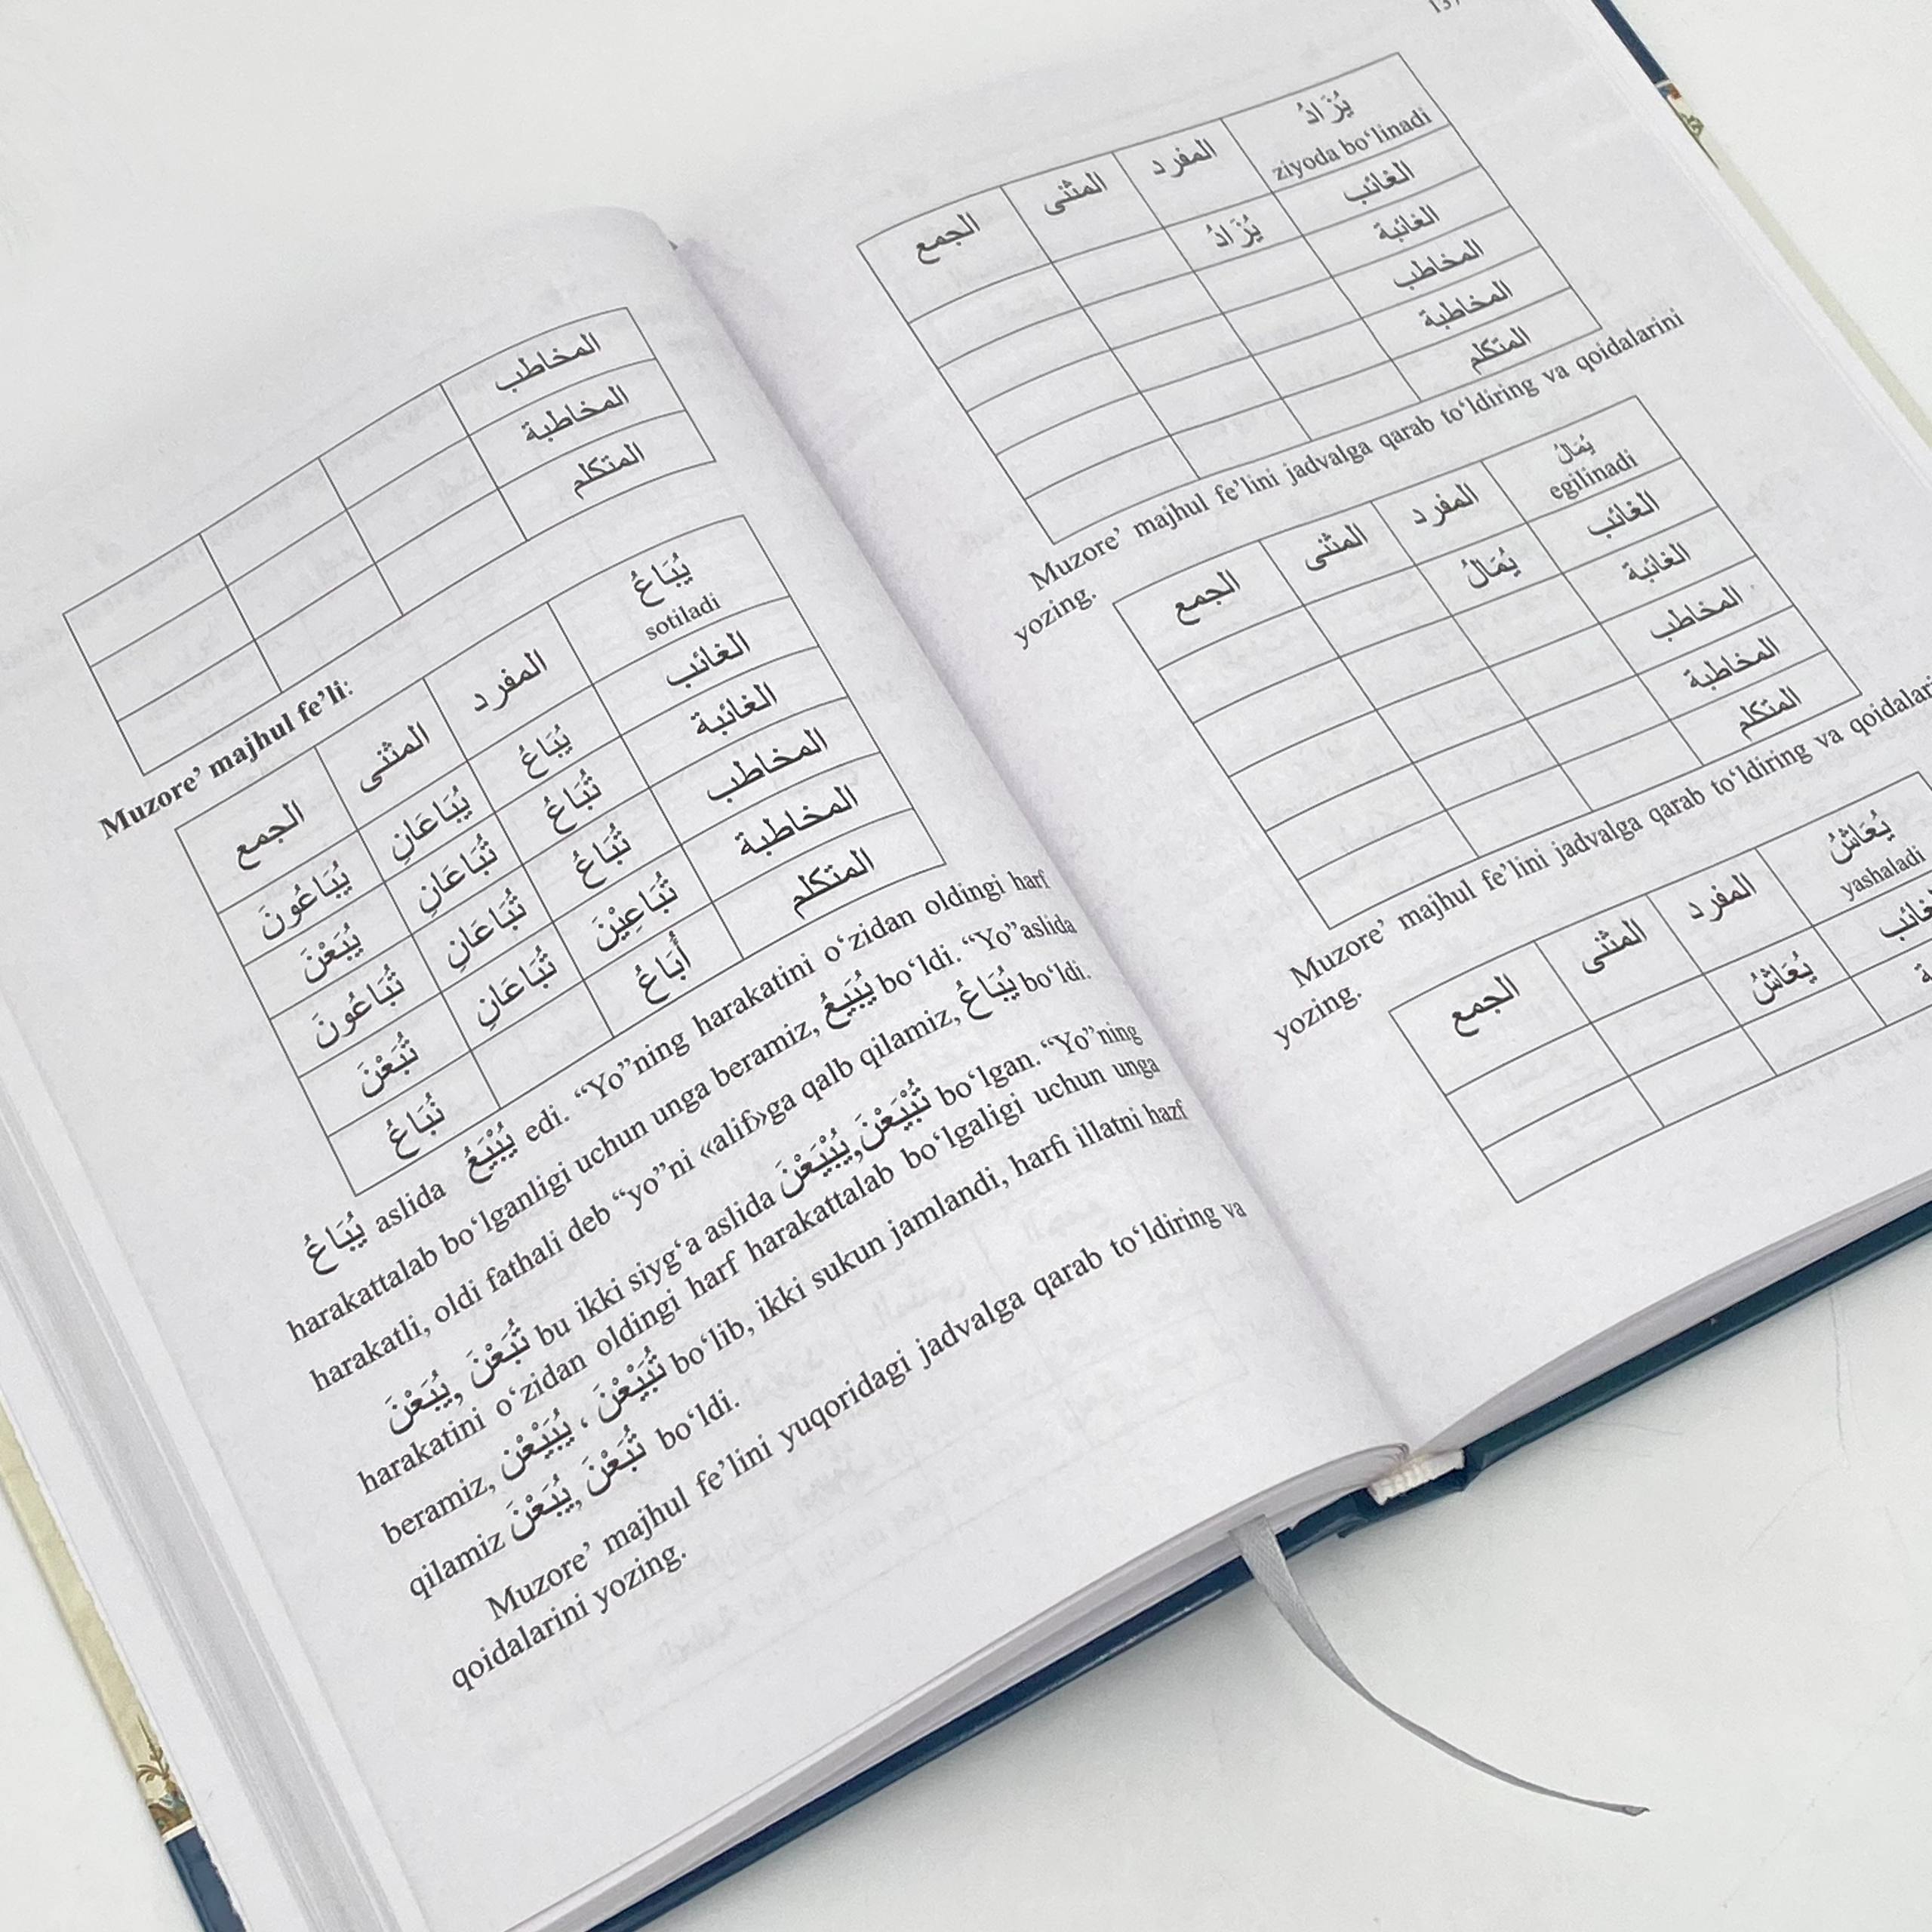 المخاطب
المخاطبة
المتكلم
Muzore’ majhul fe’li:
يُبَاعُ
sotiladi المفرد المثنى الجمع
الغائب يُبَاعُ يُبَاعَانِ يُبَاعُونَ
الغائبة تُبَاعُ تُبَاعَانِ يُبَعْنَ
المخاطب تُبَاعُ تُبَاعَانِ تُبَاعُونَ
المخاطبة تُبَاعِيْنَ تُبَاعَانِ تُبَعْنَ
المتكلم أُبَاعُ نُبَاعُ
يُبَاعُ aslida يُبْيَعُ edi. “Yo”ning harakatini o‘zidan oldingi harf
harakattalab bo‘lganligi uchun unga beramiz, يُبَيعُ bo‘ldi. “Yo”aslida
harakatli, oldi fathali deb “yo”ni «alif»ga qalb qilamiz, يُبَاعُ bo‘ldi.
يُبَعْنَ, تُبَعْنَ bu ikki siyg‘a aslida يُبْيَعْنَ,تُبْيَعْنَ bo‘lgan. “Yo”ning
harakatini o‘zidan oldingi harf harakattalab bo‘lgaligi uchun unga
beramiz, يُبَيْعْنَ ، تُبَيْعْنَ bo‘lib, ikki sukun jamlandi, harfi illatni hazf
qilamiz يُبَعْنَ, تُبَعْنَ bo‘ldi.
Muzore’ majhul fe’lini yuqoridagi jadvalga qarab to‘ldiring va
qoidalarini yozing.
يُزَادُ
ziyoda bo‘linadi المفرد المثنى الجمع
الغائب يُزَادُ
الغائبة
المخاطب
المخاطبة
المتكلم
Muzore’ majhul fe’lini jadvalga qarab to‘ldiring va qoidalarini
yozing.
يُمَالُ
egilinadi المفرد المثنى الجمع
الغائب يُمَالُ
الغائبة
المخاطب
المخاطبة
المتكلم
Muzore’ majhul fe’lini jadvalga qarab to‘ldiring va
yozing.
يُعَاشُ
yashaladi المفرد المثنى الجمع
يُعَاشُ